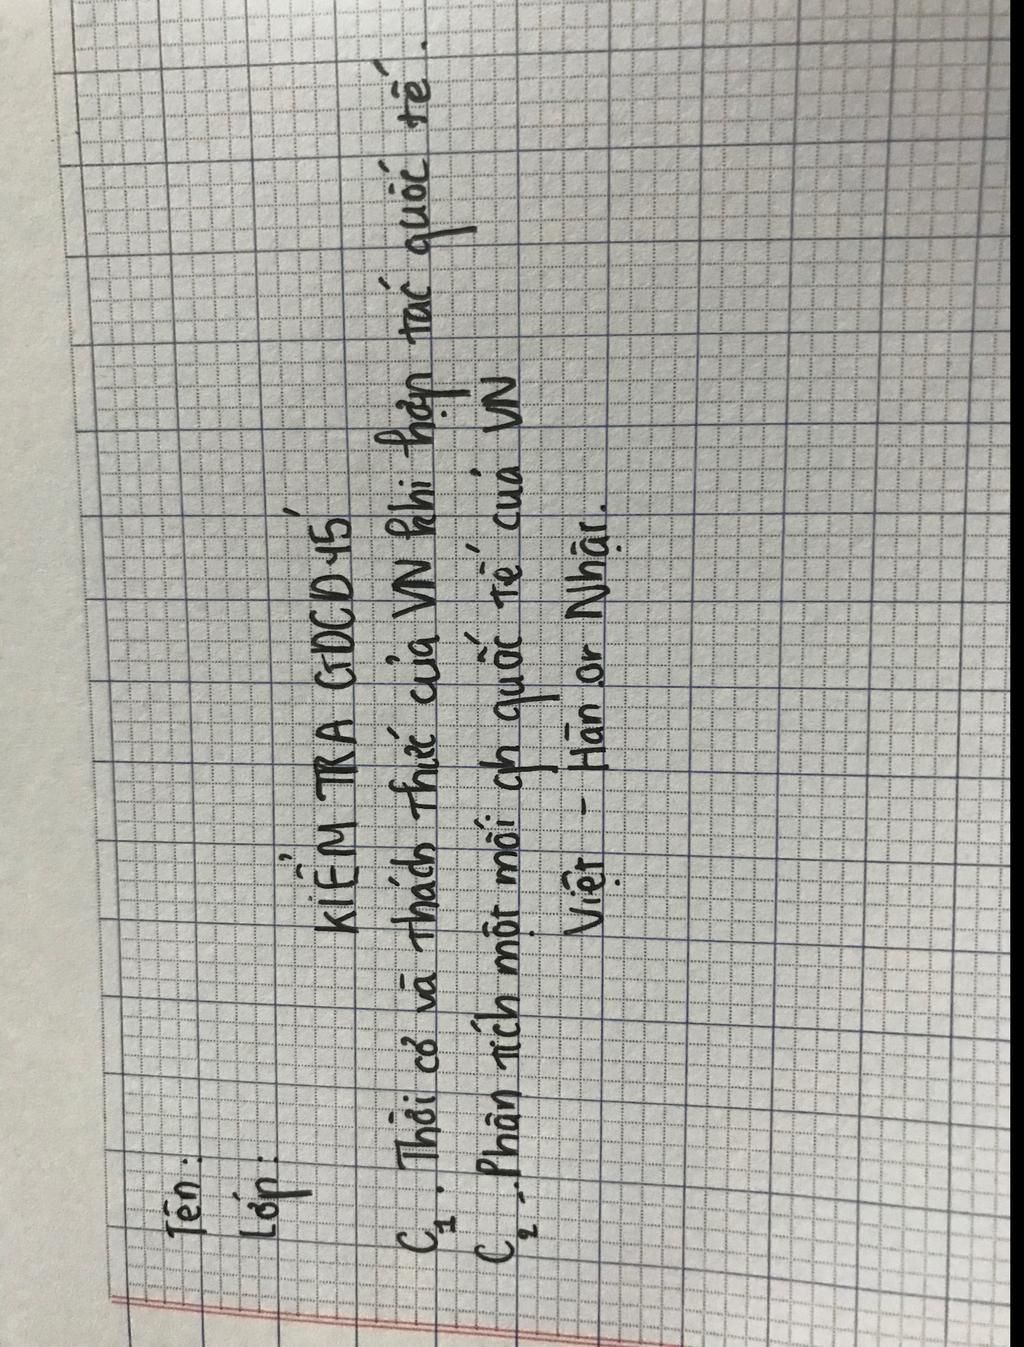 Tên:
Lớp:
KIỂM TRA GDCD 45'
C1. Thời cơ và thách thức của VN khi hợp tác quốc tế.
C2 - Phân tích một mối qh quốc tế của VN
Việt - Hàn or Nhật.